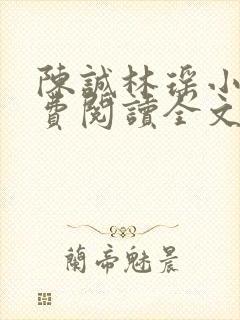 陳誠林瑶小
費閱讀全文
蘭帝魅晨